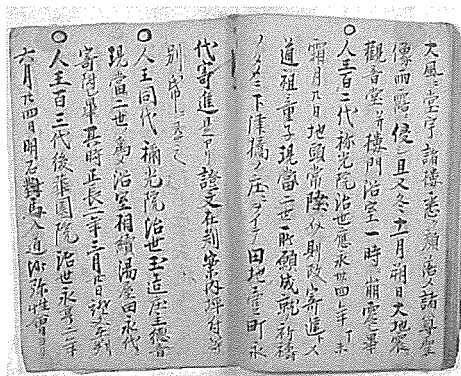 大風ニ堂宇諸樓悉ク顛落人諸尊聖
像雨露ニ侵ニ且又冬十一月朔日大地震
觀音堂前樓門浴室一時ニ崩壞畢
○人王百二代称光院治世應永廿四年丁未
霜月廿日地頭常陸介則政寄進ス
道祖童子現當二世所願成就祈禱
ノタメニ下津橋ノ庄ニヲイテ田地壹町永
代寄進 證文在判案内坪付等
別帋
○人王同代稱光院治世玉造庄主德音
現當二世ノ為ニ浴室相續湯屋田永代
寄附畢其時正長二年三月廿日證文在判
○人王百三代後花園院治世永享二年
六月廿四日明石對馬入道沙弥性